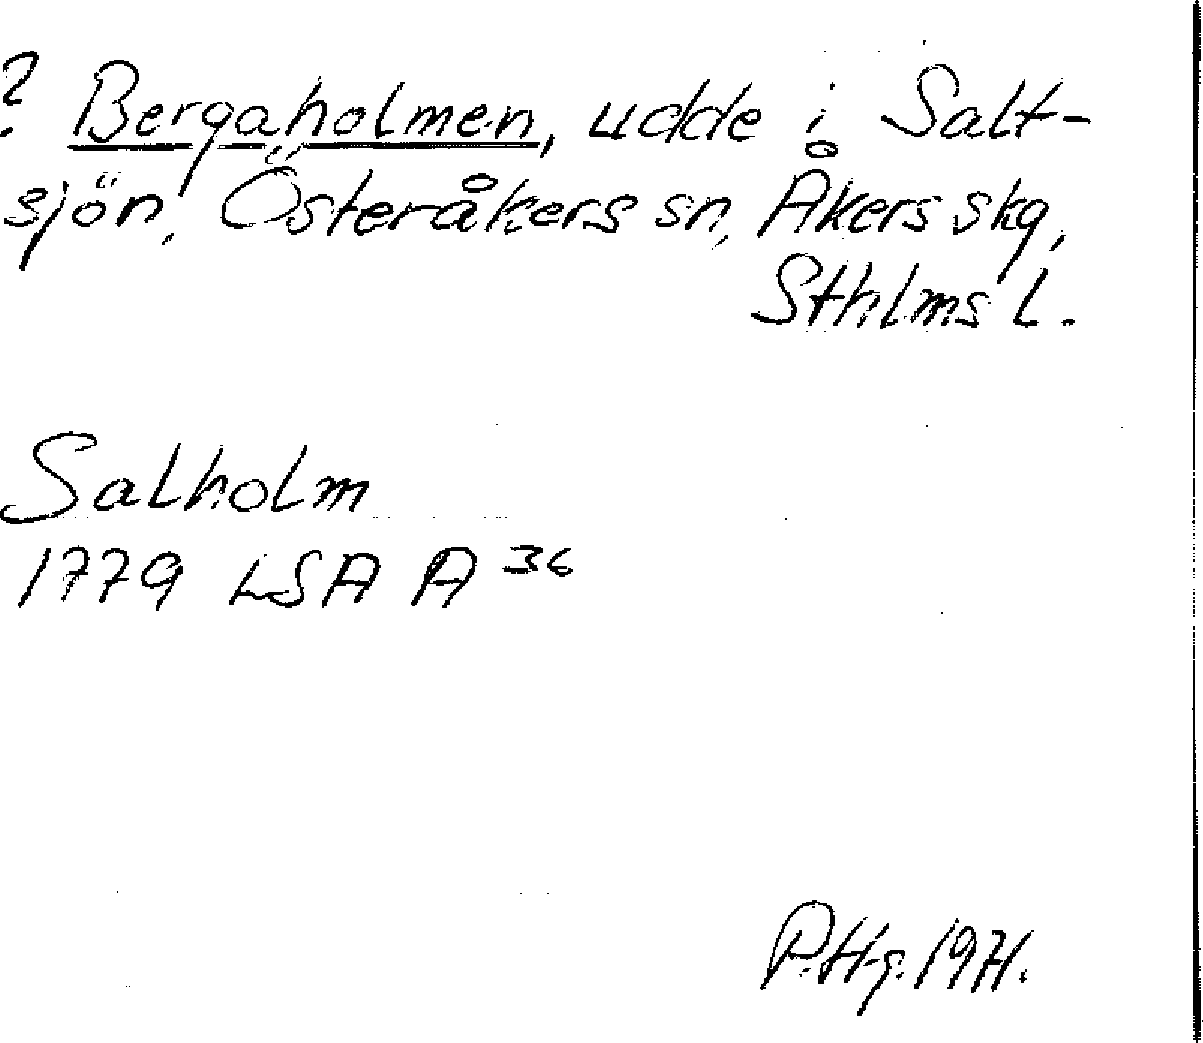 ? Bergaholmen, udde i Salt-
sjön, Österåkers sn, Åkers skg,
Sthlms l.
Salholm
1779 LSA A 36
P.Hg. 1971.